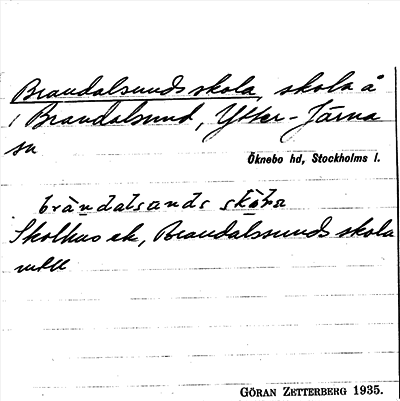 Brandalsunds skola, skola å
i Brandalsund, Ytter-Järna
sn
Öknebo hd, Stockholms l.
bràndalsands skola
Skolhus ek, Brandalssunds skola
mtll
GÖRAN ZETTERBERG 1935.